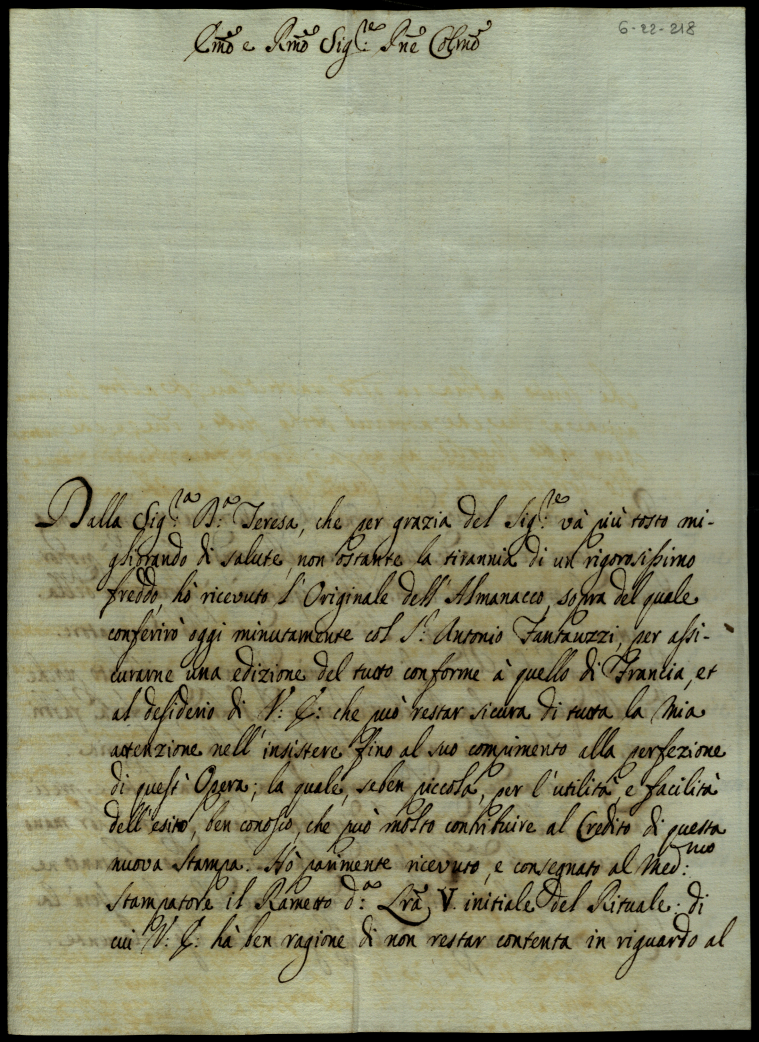 6-22-218
Emõ e Rmõ Sig.re Pñe Colmõ
Dalla Sig.ra B.a Teresa, che per grazia del Sig.re và più tosto mi-
gliorando di salute, non ostante la tirannia di un rigorosissimo
freddo, hò ricevuto l'Originale dell'Almanacco, sopra del quale
conferirò oggi minutamente col S.r Antonio Fantauzzi, per assi-
curarne una edizione del tutto conforme à quello di Francia, et
al desiderio di V: E: che può restar sicura di tutta la mia
attenzione nell'insistere fino al suo compimento alla perfezione
di quest'Opera; la quale, seben piccola, per l'utilità, e facilità
dell'esito, ben conosco, che può molto contribuire al Credito di questa
nuova Stampa. Hò parimente ricevuto, e consegnato al Med:mo
Stampatore il Rametto d:a Lrã V. initiale del Rituale: di
cui V: E: hà ben ragione di non restar contenta in riguardo al